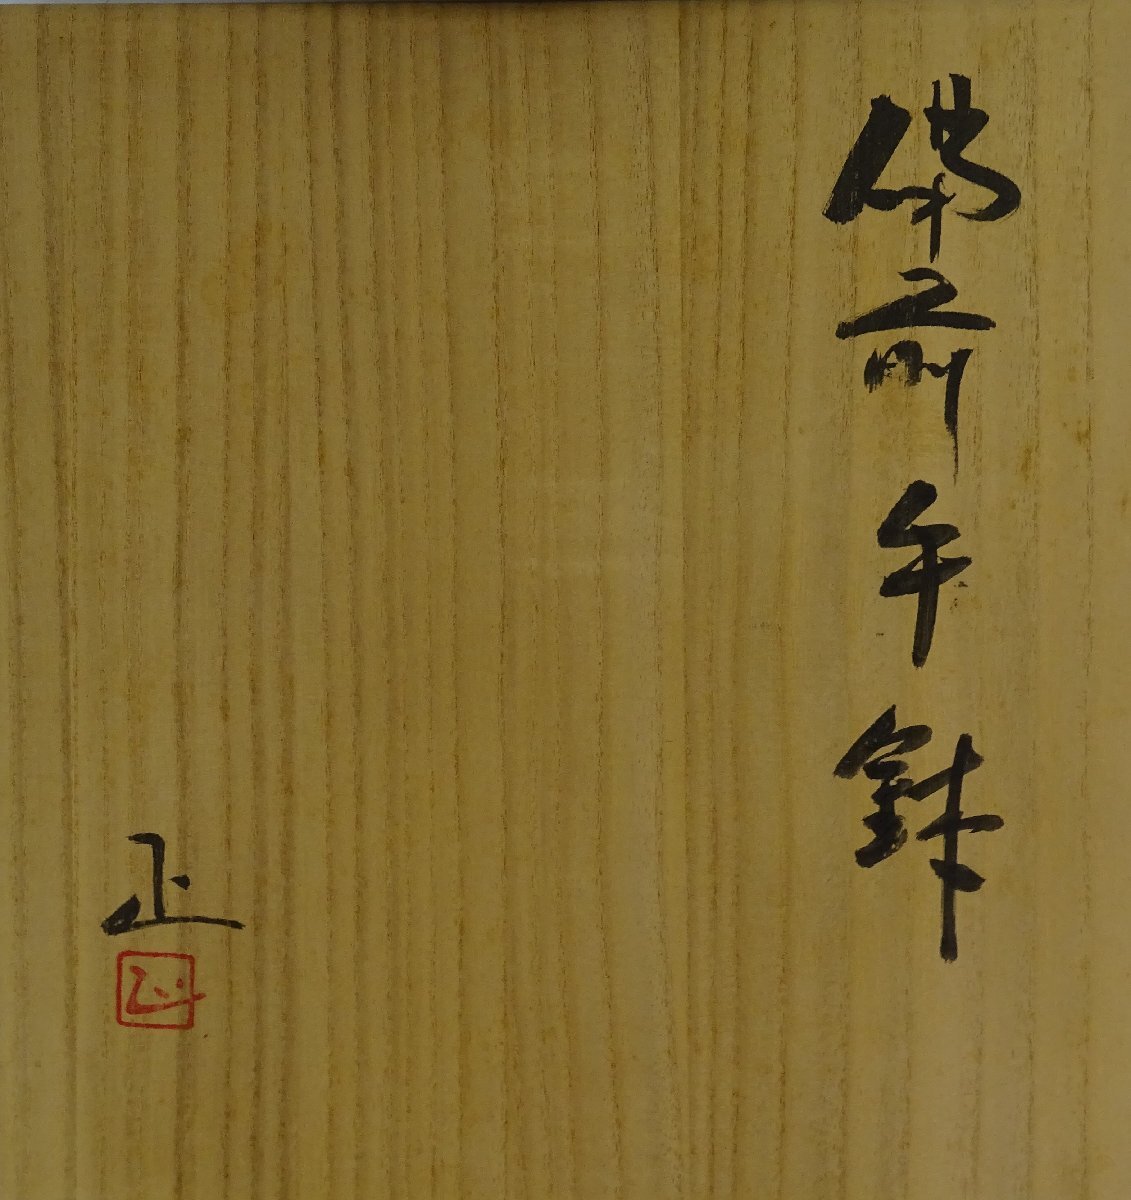 備前手鉢
正